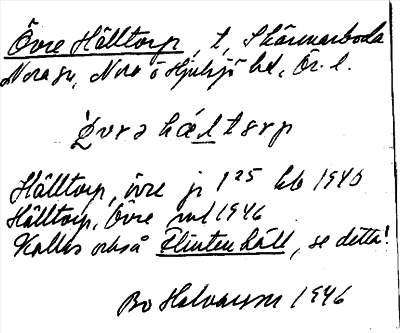 Övre Hälltorp, t, Skärmarboda
Nora sn, Nora o Hjulsjö hd, Ör. l.
Hälltorp, övre jr 1 25 kb 1940
Hälltorp, Övre 1946
Kallas också Flintenhäll, se detta!
Bo Halvarsson 1946